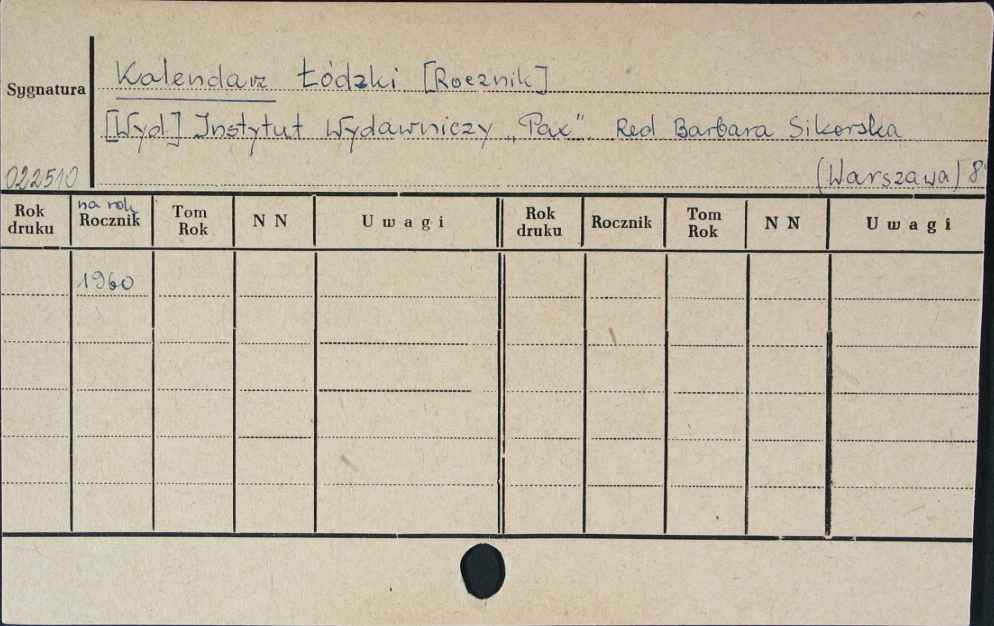 Sygnatura
Kalendarz Łódzki [Rocznik]
[Wyd] Instytut Wydawniczy „Pax". Red Barbara Sikorska
022510
(Warszawa) 8°
Rok druku
na rok
Rocznik
Tom Rok
N N
Uwagi
Rok druku
Rocznik
Tom Rok
N N
Uwagi
1960